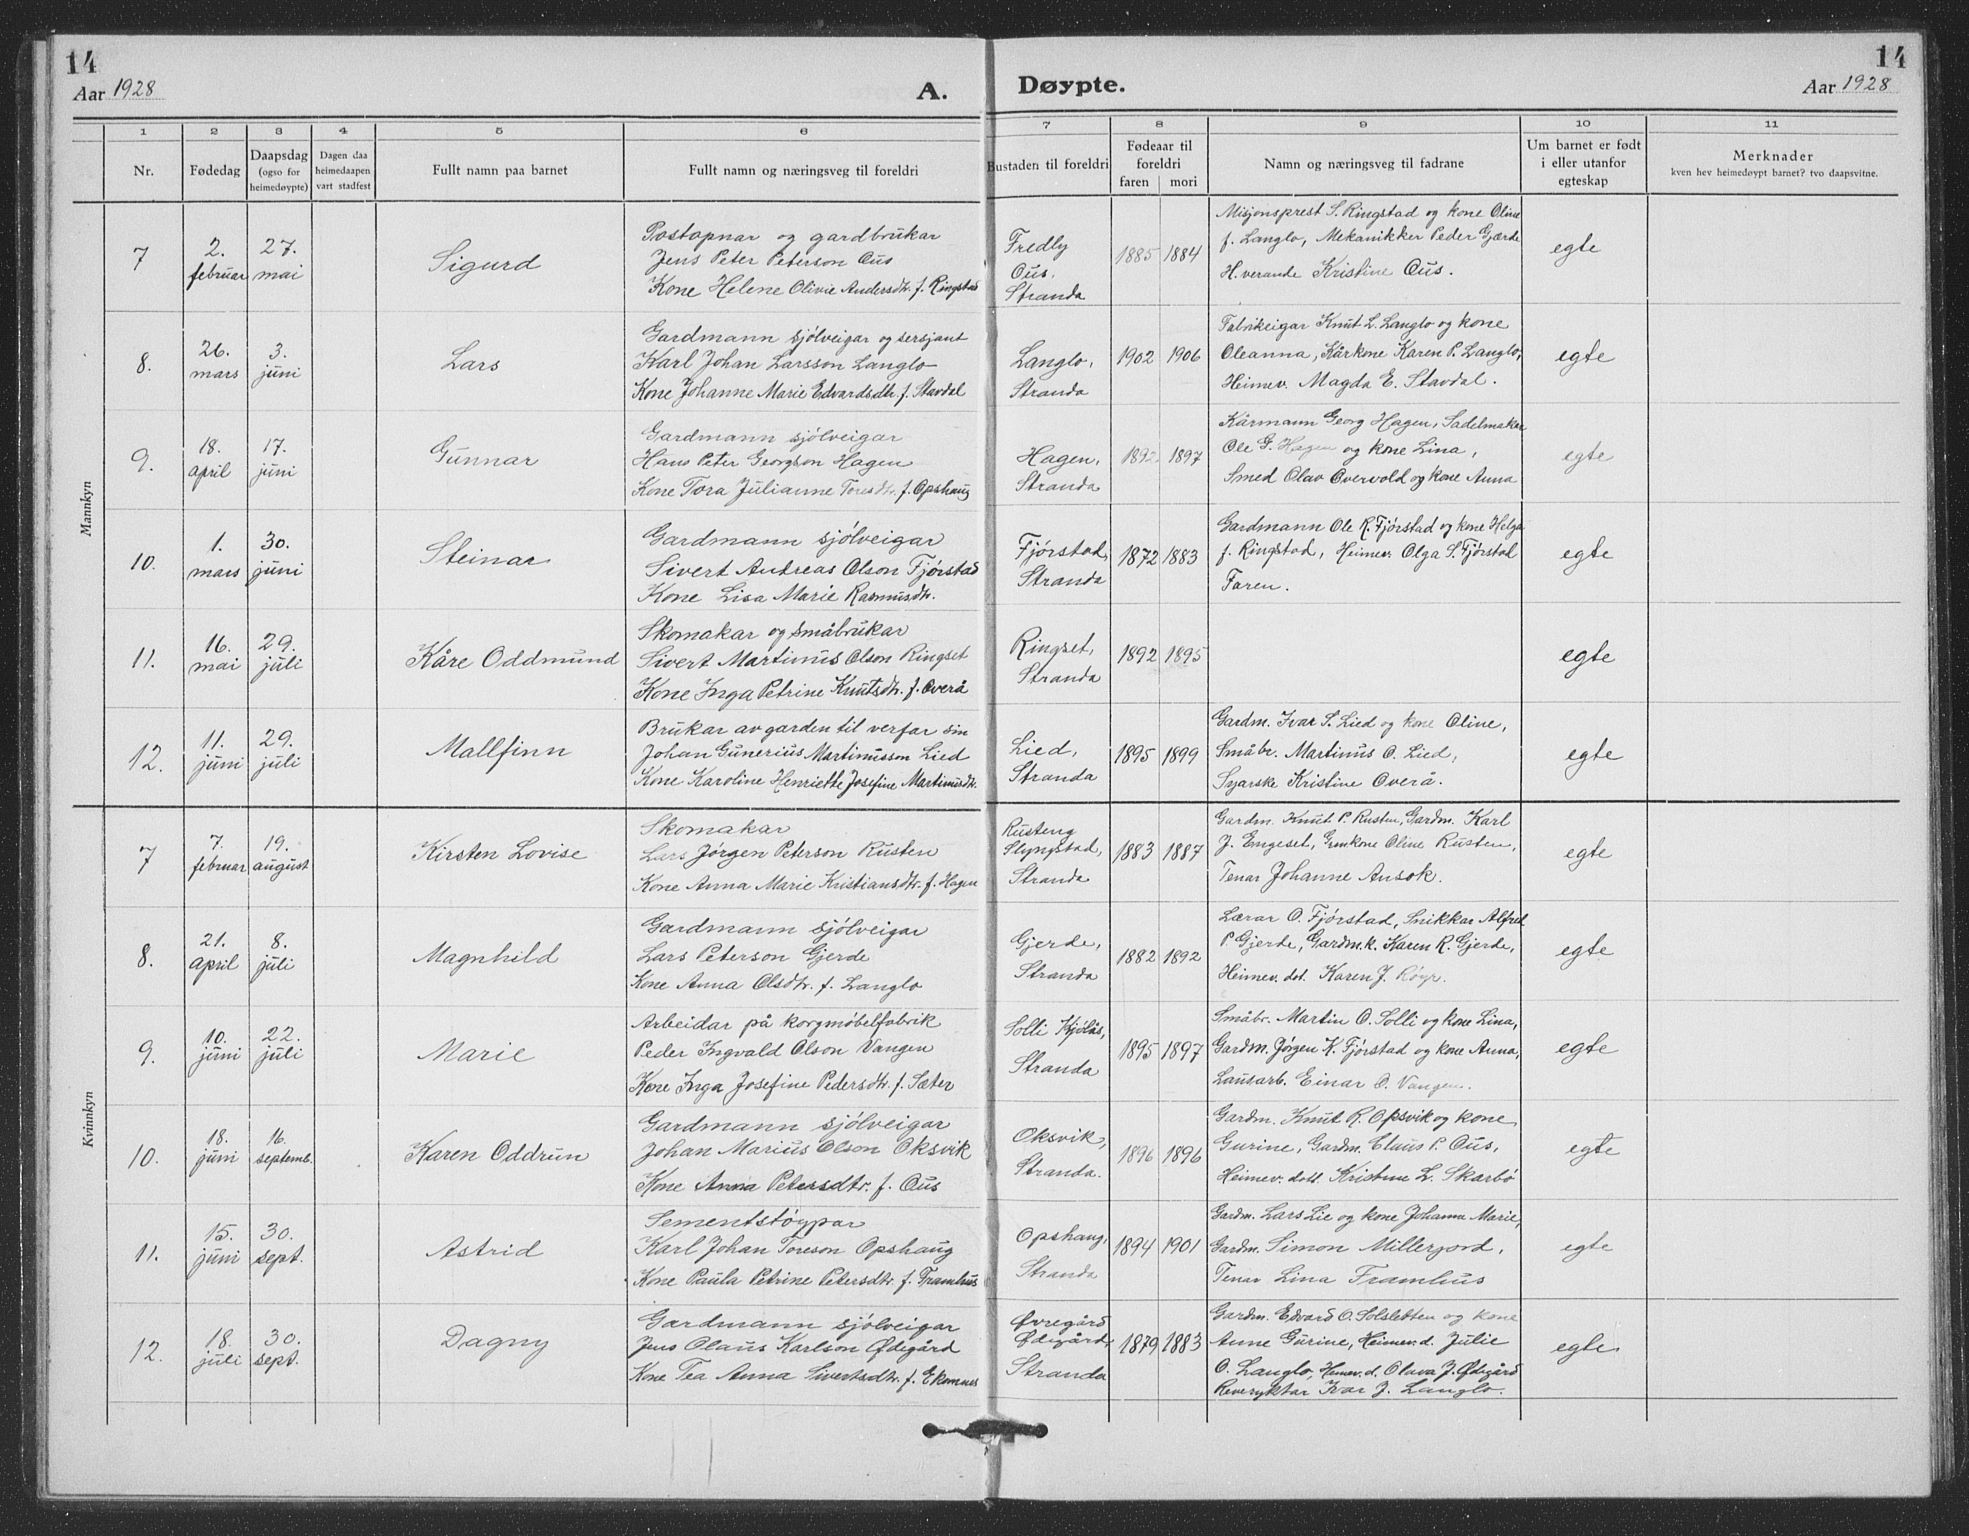 14
14
Aar 1928
A.
Døypte.
Aar 1928
1 2 3 4 5 6 7 8 9 10 11
Nr.
Fødedag
Daapsdag
(ogso for
heimedøypte)
Dagen daa
heimedaapen
vart stadfest
Fullt namn paa barnet
Fullt namn og næringsveg til foreldri
Bustaden til foreldri
Fødeaar til
foreldri
faren mori
Namn og næringsveg til fadrane
Um barnet er født
i eller utanfor
egteskap
Merknader
kven hev heimedøypt barnet? tvo daapsvitne.
Mannkyn
7
2.
februar
27.
mai
Sigurd
Postopnar og gardbrukar
Jens Peter Peterson Ous
Kone Helene Olivie Andersdtr. f. Ringstad
Fredly
Ous,
Stranda
1885 1884
Misjonsprest S. Ringstad og kone Oline
f. Langlo, Mekanikker Peder Gjærde
H.verande Kristine Ous.
egte
8.
26.
mars
3.
juni
Lars
Gardmann sjölveigar og sersjant
Karl Johan Larsson Langlo
Kone Johanne Marie Edvardsdtr. f. Stavdal
Langlo,
Stranda
1902 1906
Fabrikeigar Knut L. Langlo og kone
Oleanna, Kårkone Karen P. Langlo,
Heimev. Magda E. Stavdal.
egte
9.
18.
april
17.
juni
Gunnar
Gardmann sjölveigar
Hans Peter Georgson Hagen
Kone Tora Julianne Toresdtr. f. Opshaug
Hagen,
Stranda
1892 1897
Kårmann Georg Hagen, Sadelmakar
Ole G. Hagen og kone Lina,
Smed Olav Overvold og kone Anna
egte
10.
1.
mars
30.
juni
Steinar
Gardmann sjölveigar
Sivert Andreas Olson Fjörstad
Kone Lisa Marie Rasmusdtr.
Fjörstad,
Stranda
1872 1883
Gardmann Ole R. Fjörstad og kone Helga
f. Ringstad, Heimev. Olga S. Fjörstad
Faren.
egte
11.
16.
mai
29.
juli
Kåre Oddmund
Skomakar og småbrukar
Sivert Martinus Olson Ringset
Kone Inga Petrine Knutsdtr. f. Overå
Ringset,
Stranda
1892 1895
egte
12.
11.
juni
29.
juli
Mallfinn
Brukar av garden til verfar sin
Johan Gunerius Martinusson Lied
Kone Karoline Henriette Josefine Martinusdtr.
Lied,
Stranda
1895 1899
Gardm. Ivar S. Lied og kone Oline,
Småbr. Martinus O. Lied,
Syarske Kristine Overå.
egte
Kvinnkyn
7
7.
februar
19.
august
Kirsten Lovise
Skomakar
Lars Jørgen Peterson Rusten
Kone Anna Marie Kristiansdtr. f. Hagen
Slyngstad,
Stranda
1883 1887
Gardm. Knut P. Rusten, Gardm. Karl
J. Engeset, Oline Rusten,
Tenar Johanne Ansok.
egte
8.
21.
april
8.
juli
Magnhild
Gardmann sjölveigar
Lars Peterson Gjerde
Kone Anna Olsdtr. f. Langlo
Gjerde,
Stranda
1882 1892
Lærar O. Fjörstad, Snikkar Alfred
P Gjerde, Gardm.k. Karen R. Gjerde,
Heimev. dot. Karen J. Röyr.
egte
9.
10.
juni
22.
juli
Marie
Arbeidar på korgmöbelfabrik
Peder Ingvald Olson Vangen
Kone Inga Josefine Pedersdtr. f. Sæter
Solli Kjölås,
Stranda
1895 1897
Småbr. Martin O. Solli og kone Lina,
Gardm. Jørgen K. Fjörstad og kone Anna,
Lausarb. Einar O. Vangen.
egte
10.
18.
juni
16.
septemb.
Karen Oddrun
Gardmann sjölveigar
Johan Marius Olson Oksvik
Kone Anna Petersdtr. f. Ous
Oksvik,
Stranda.
1896 1896
Gardm. Knut R. Opsvik og kone
Gurine, Gardm. Claus P. Ous,
Heimev. dott. Kristine L. Skarbö
egte
11.
15.
juni
30.
sept.
Astrid
Sementstöypar
Karl Johan Toreson Opshaug
Kone Paula Petrine Petersdtr. f. Framhus
Opshaug,
Stranda
1894 1901
Gardm. Lars Lie og kone Johanna Marie,
Gardm. Simon Millerjord,
Tenar Lina Framhus
egte
12.
18.
juli
30.
sept.
Dagny
Gardmann sjölveigar
Jens Olaus Karlson Ødegård
Kone Tea Anna Sivertsdtr. f. Ekornnes
Øvregård
Ødegård,
Stranda
1879 1883
Gardm. Edvard O. Solsletten og kone
Anne Gurine, Heimev.d. Julie
O. Langlo, Heimev. d. Olava J. Ødegård
Reverøktar Ivar J. Langlo.
egte